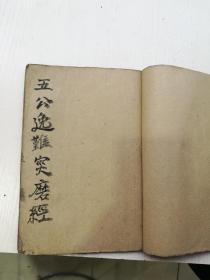 五公逃難突磨經